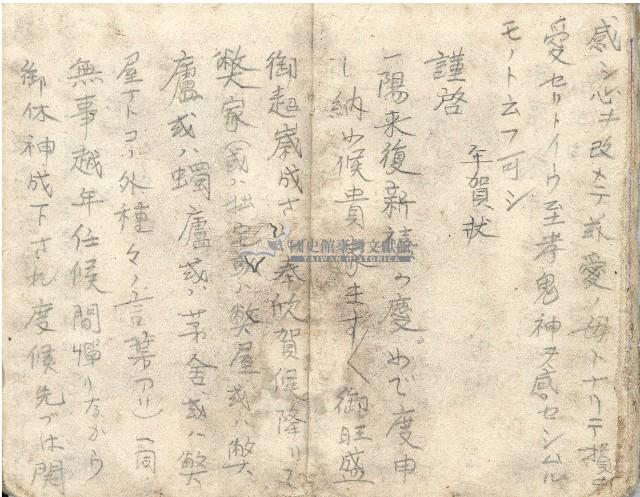 感シ心ヲ改メテ慈愛ノ母トナリテ損ヲ
愛セリトイウ至孝鬼神ヲ感セシムル
モノト云フ可シ
年賀状
謹啓
一陽来復新禧の慶めで度申
し納め候貴家ますく御旺盛
御超歳成さ 奉欣賀候降りて
弊家(或ハ拙宅或ハ弊屋或ハ弊
廬或ハ蠋廬或ハ茅舍或ハ弊
屋ナトコノ外種々ノ言葉アリ)一同
無事越年仕候間憚りながら
御休神成下され度候先づは
國史館臺灣文獻館
TAIWAN HISTORICA